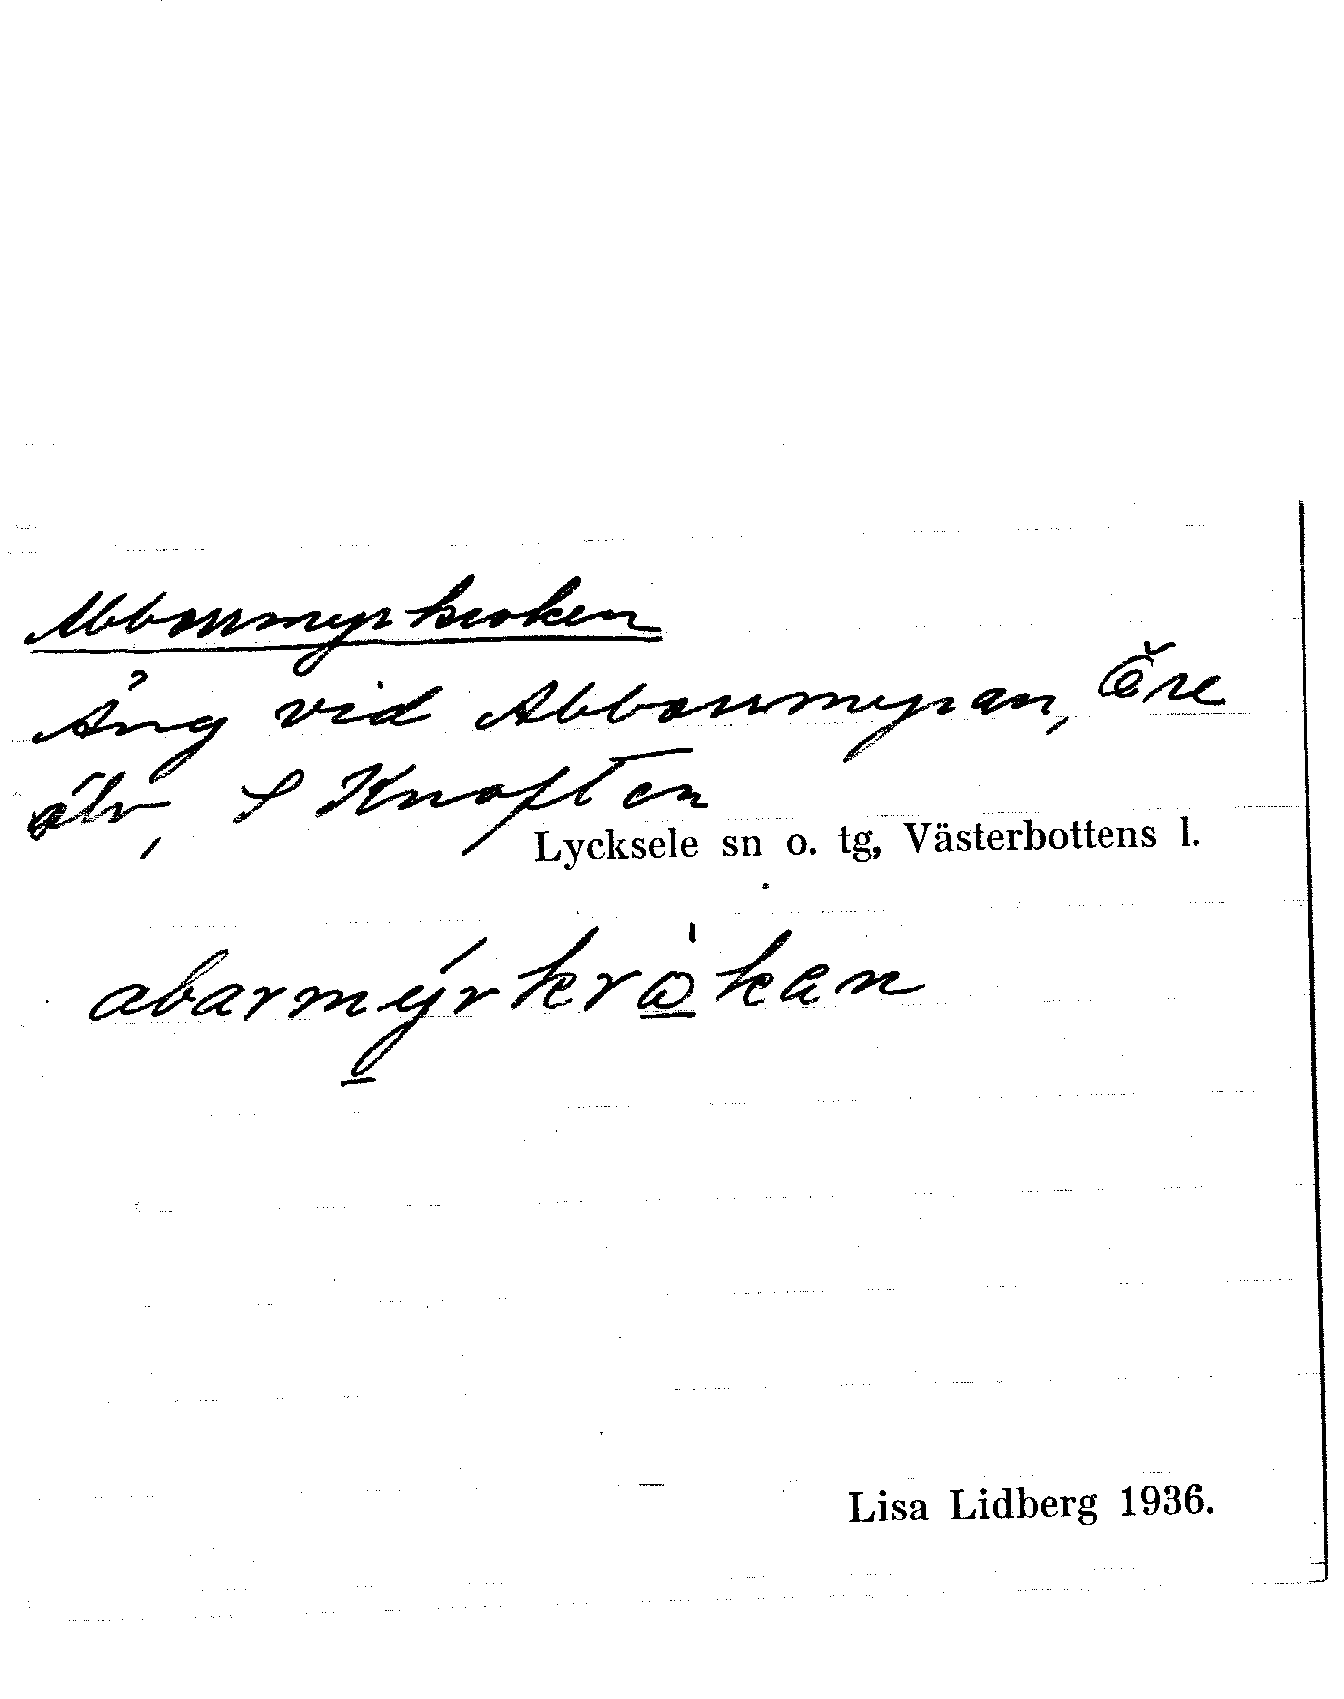 Abborrmyrkroken
Äng vid Abborrmyran, Öre
älv, S Knaften
Lycksele sn o. tg, Västerbottens l.
abarmýrkrò̱kan
Lisa Lidberg 1936.